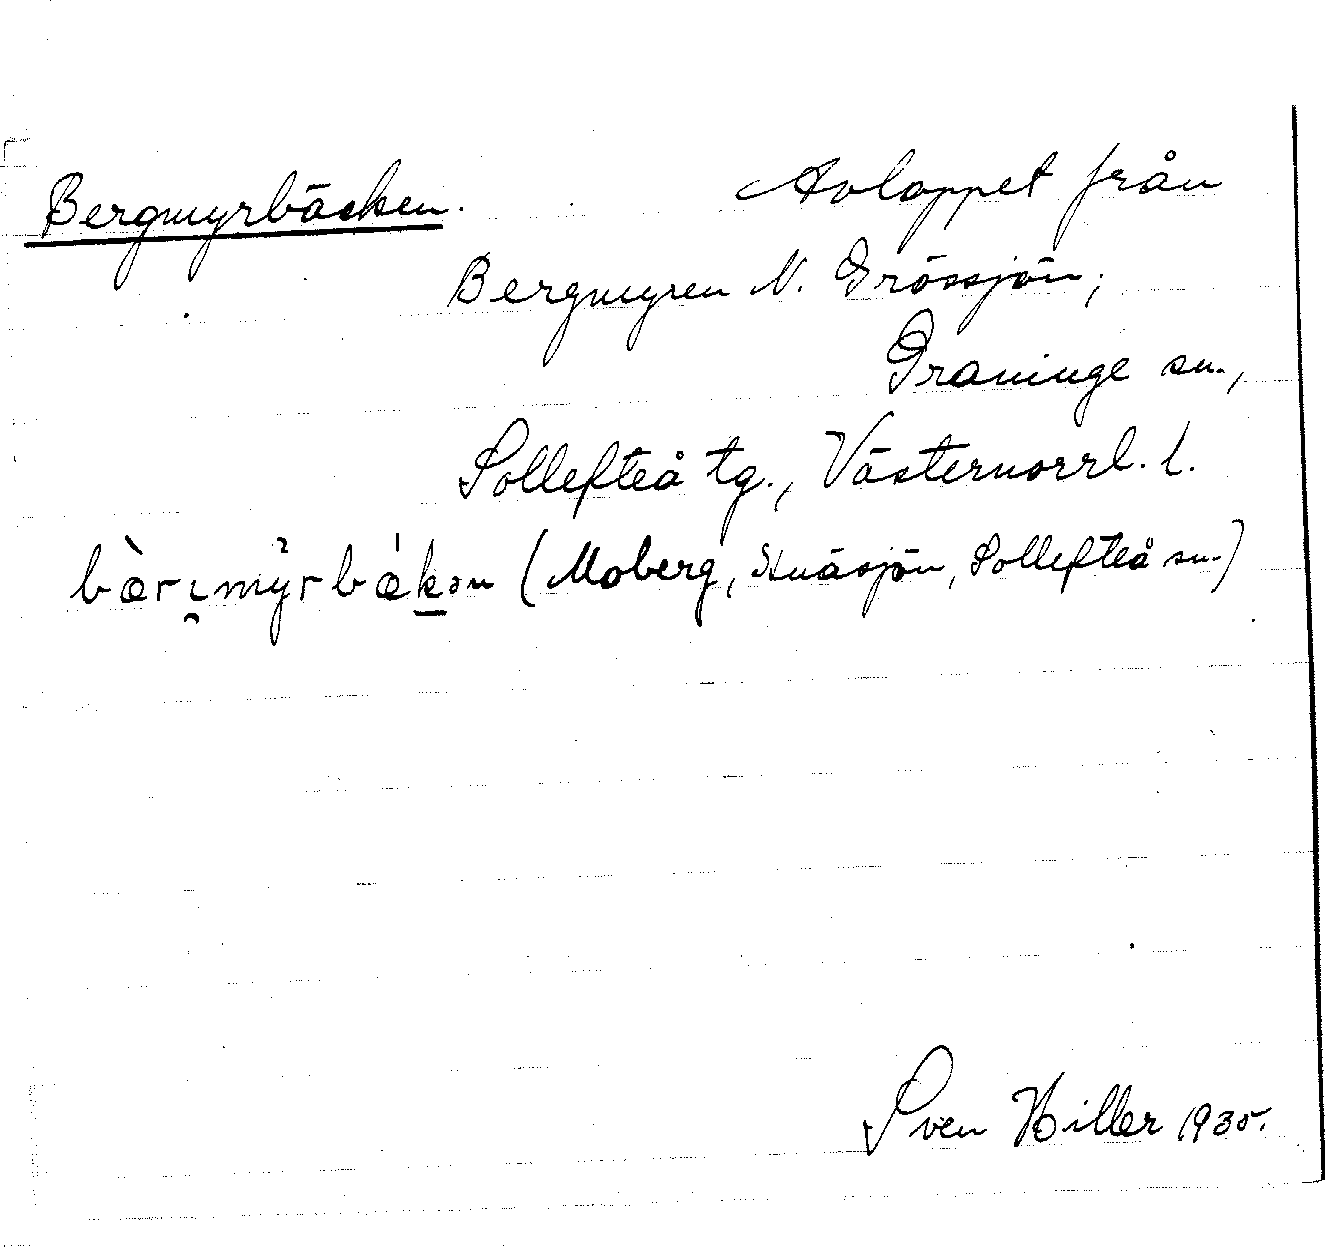 Bergmyrbäcken. Avloppet från
Bergmyren N. Grössjön;
Graninge sn.,
Sollefteå tg., Västernorrl. l.
bær̀i̯mỳrbǽkən (Moberg, Knäsjön, Sollefteå sn.)
Sven Hiller 1935.